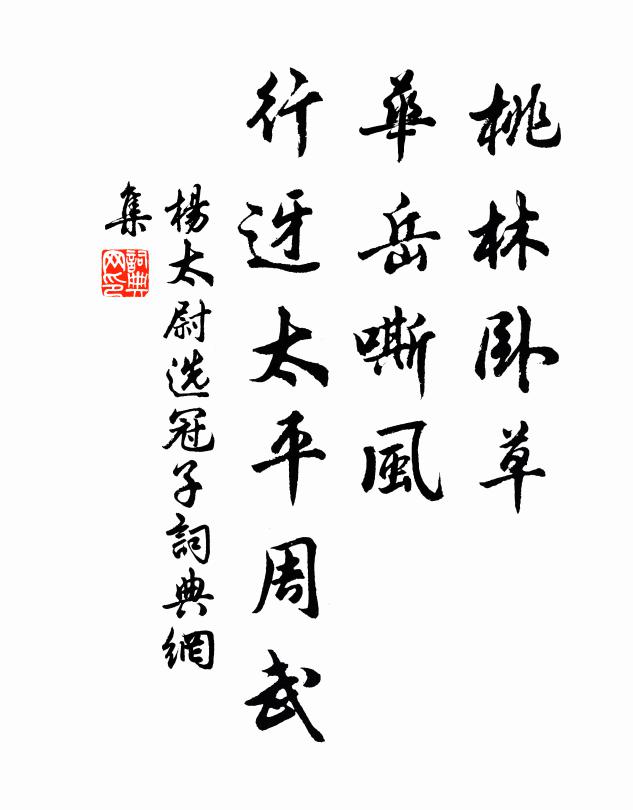 桃林卧草
華岳嘶風
行迓太平周武
楊太尉选冠子詞典網
集
詞典網印